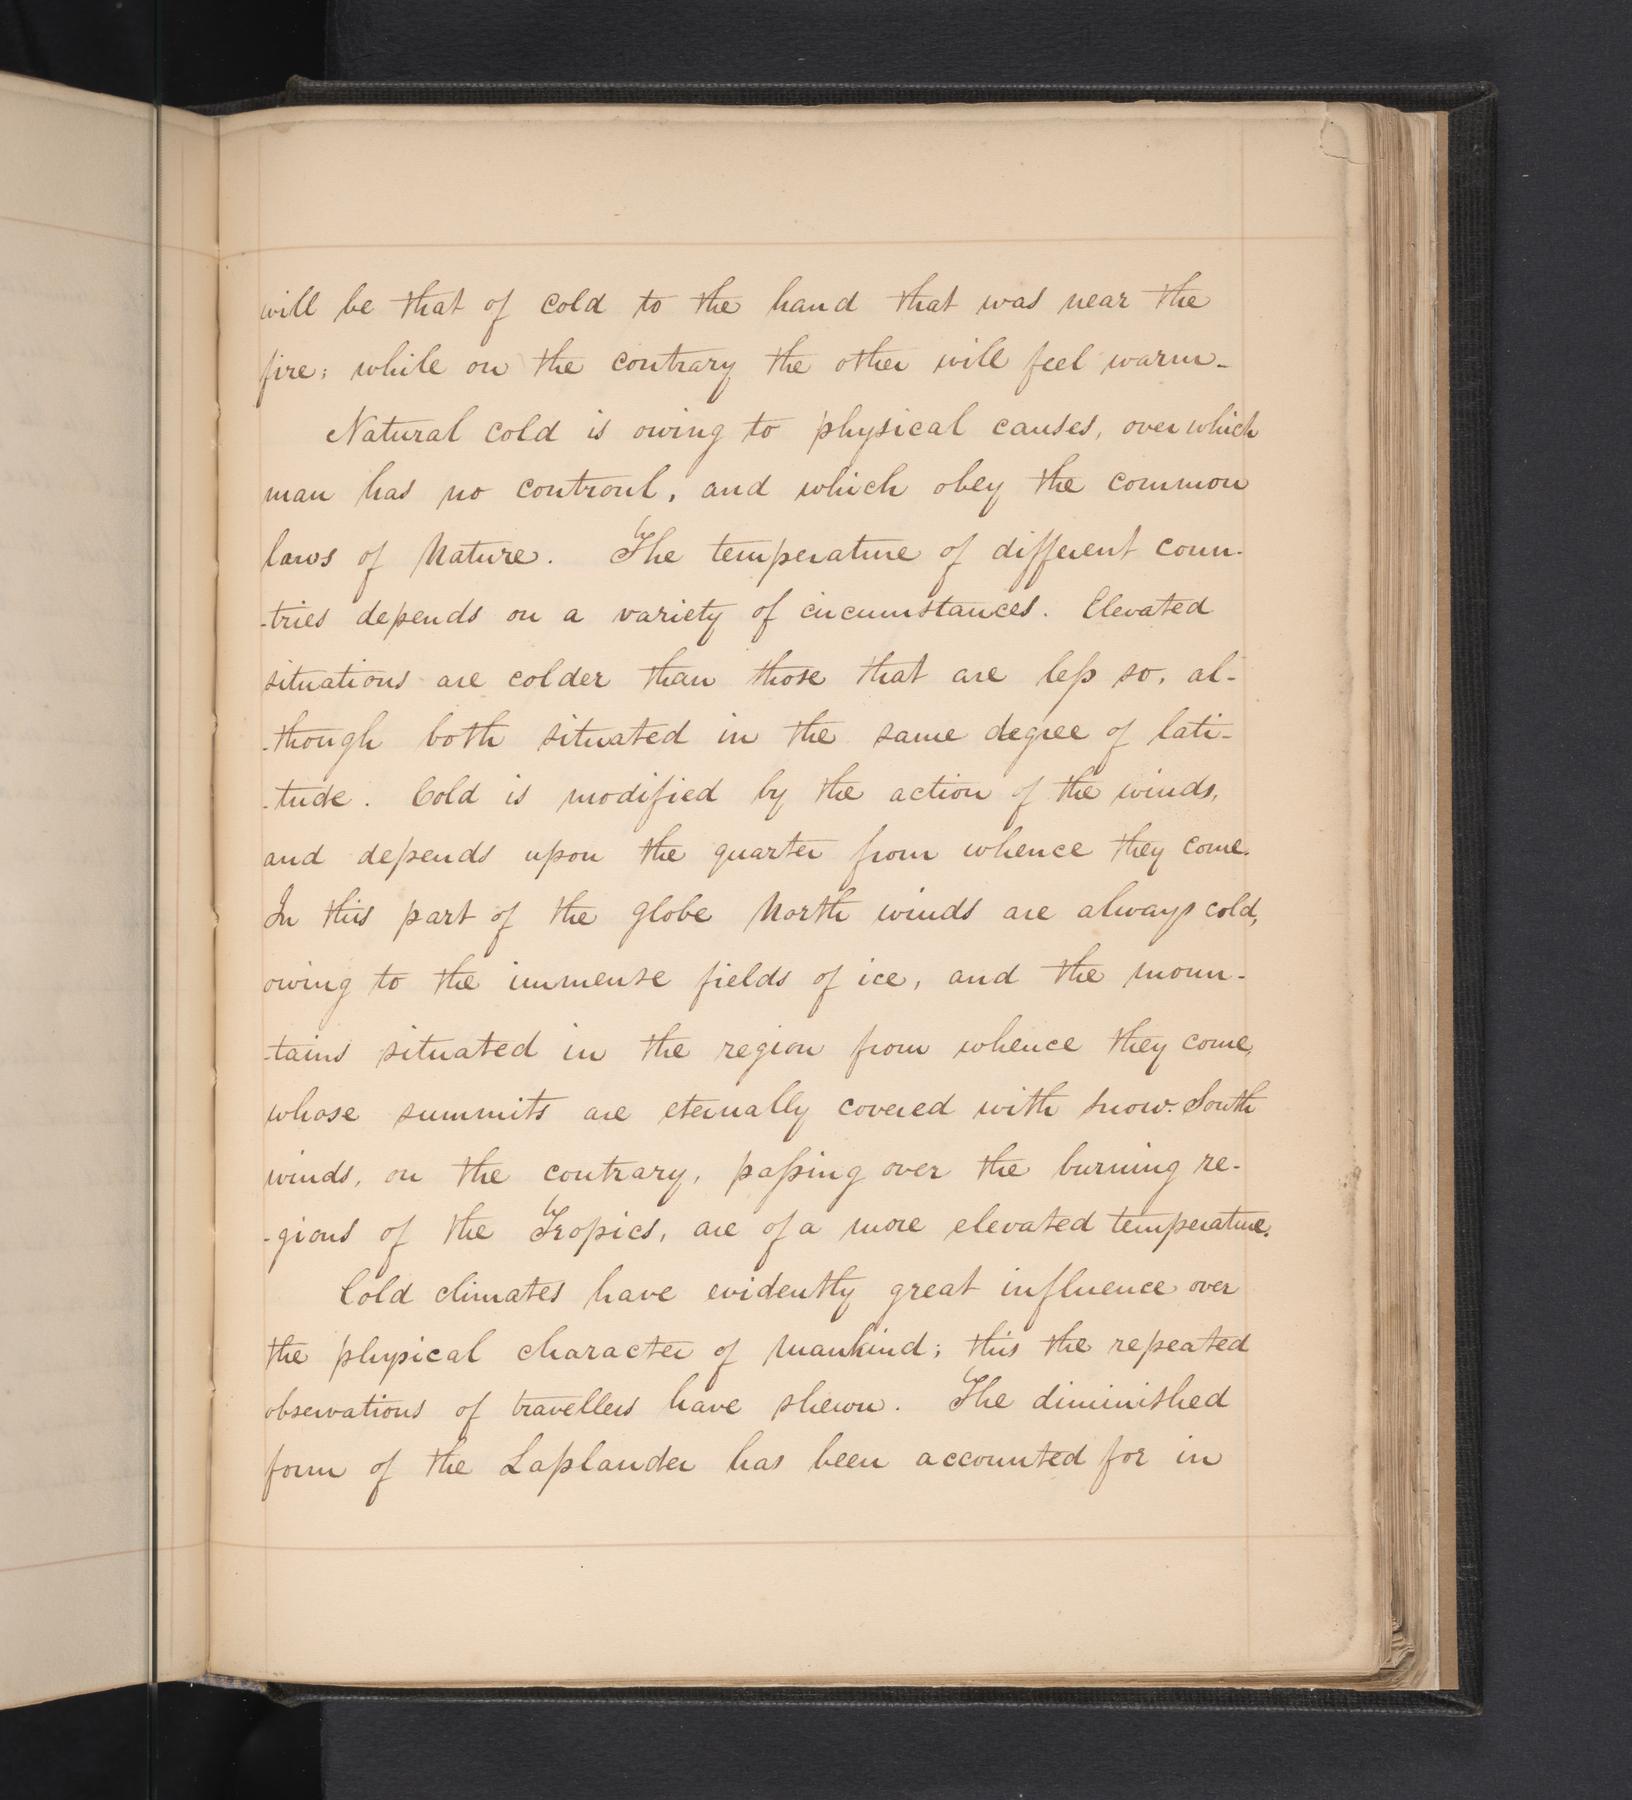 will be that of cold to the hand that was near the
fire; while on the contrary the other will feel warm-
Natural cold is owing to physical causes, over which
man has no controul, and which obey the common
laws of Nature. The temperature of different coun-
-tries depends on a variety of circumstances. Elevated
situations are colder than those that are less so, al-
-though both situated in the same degree of lati-
-tude. Cold is modified by the action of the winds,
and depends upon the quarter from whence they come.
In this part of the globe North winds are always cold,
owing to the immense fields of ice, and the moun-
-tains situated in the region from whence they come,
whose summits are eternally covered with snow. South
winds, on the contrary, passing over the burning re-
-gions of the Tropics, are of a more elevated temperature.
Cold climates have evidently great influence over
the physical character of mankind; this the repeated
observations of travellers have shewn. The diminished
form of the Laplander has been accounted for in